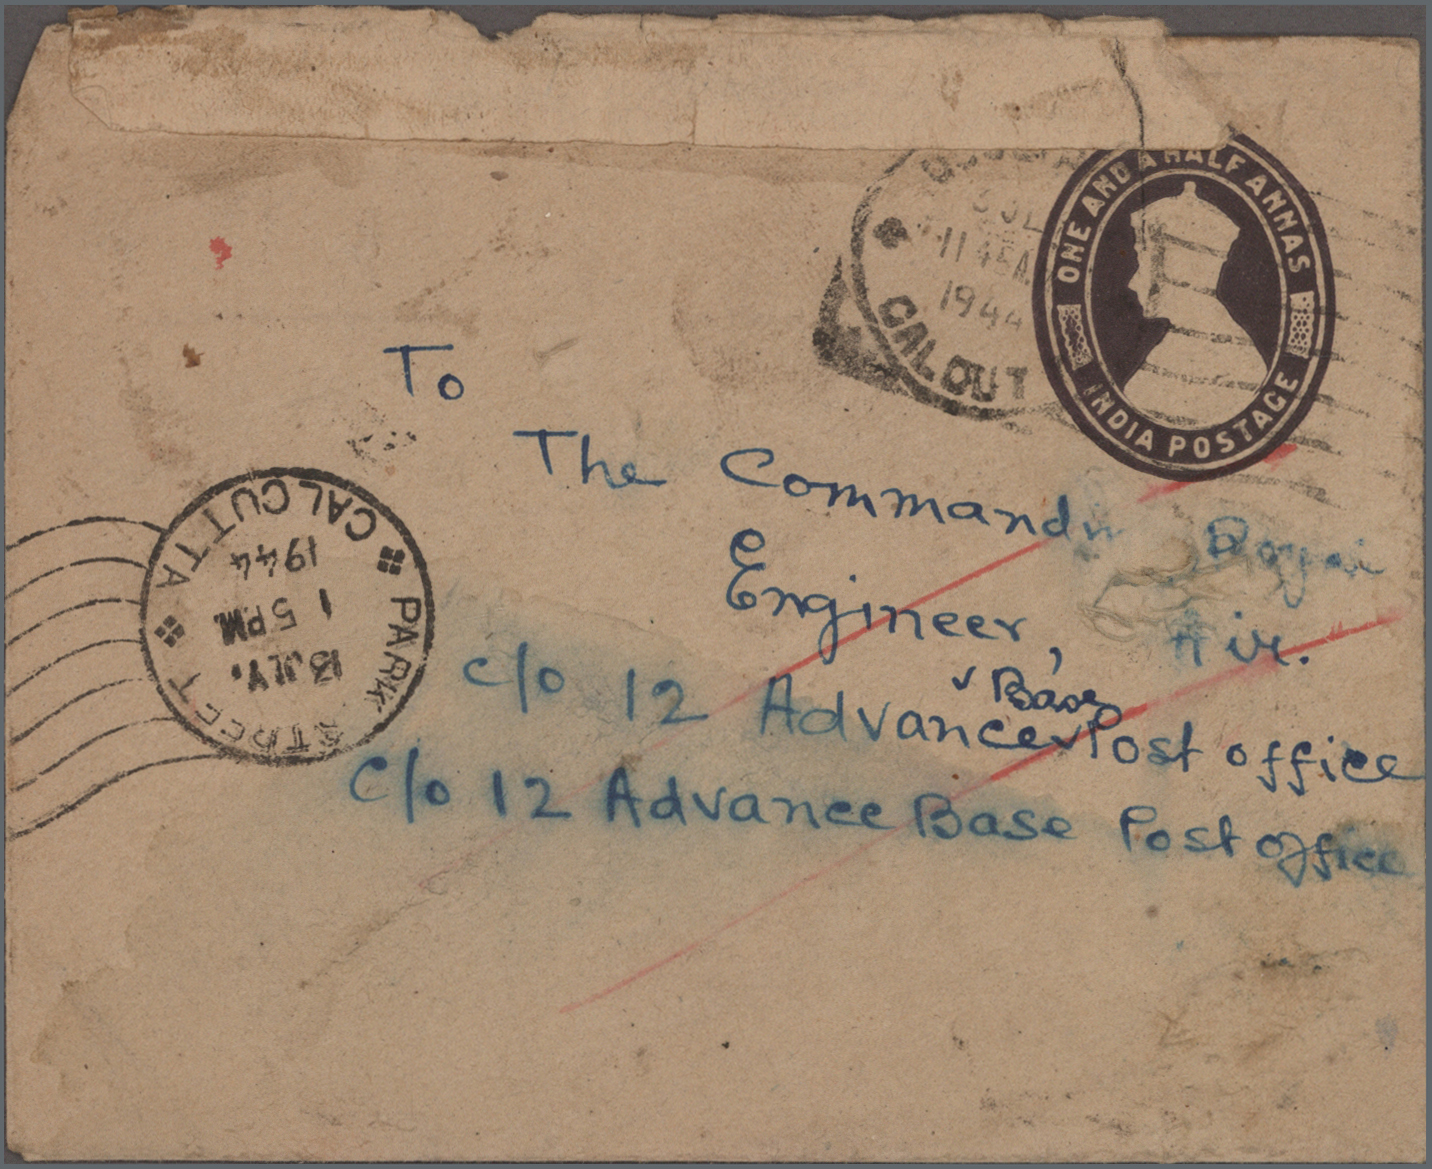 ONE AND A HALF ANNAS
INDIA POSTAGE
11 45A
1944
CALCUT
To
The Commandin
Engineer, Air.
Base
c/o 12 Advance Post office
c/o 12 Advance Base Post office
PARK STREET
CALCUTTA
1944
1 5 PM
13 JLY.